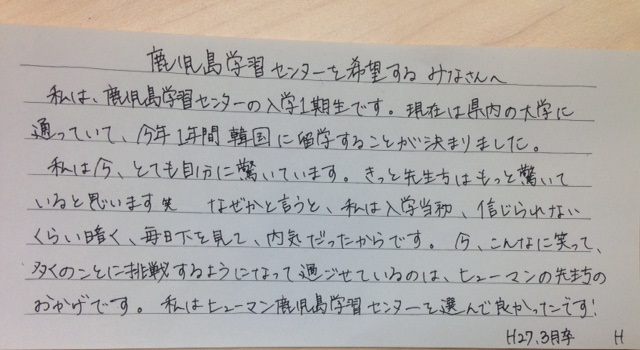 鹿児島学習センターを希望する みなさんへ
私は、鹿児島学習センターの入学1期生です。現在は県内の大学に
通っていて、今年1年間 韓国に留学することが決まりました。
私は今、とても自分に驚いています。きっと先生方はもっと驚いて
いると思います笑 なぜかと言うと、私は入学当初、信じられない
くらい暗く、毎日下を見て、内気だったからです。今、こんなに笑って、
多くのことに挑戦するようになって過ごせているのは、ヒューマンの先生方の
おかげです。私はヒューマン鹿児島学習センターを選んで良かったです!
H27.3月卒 H